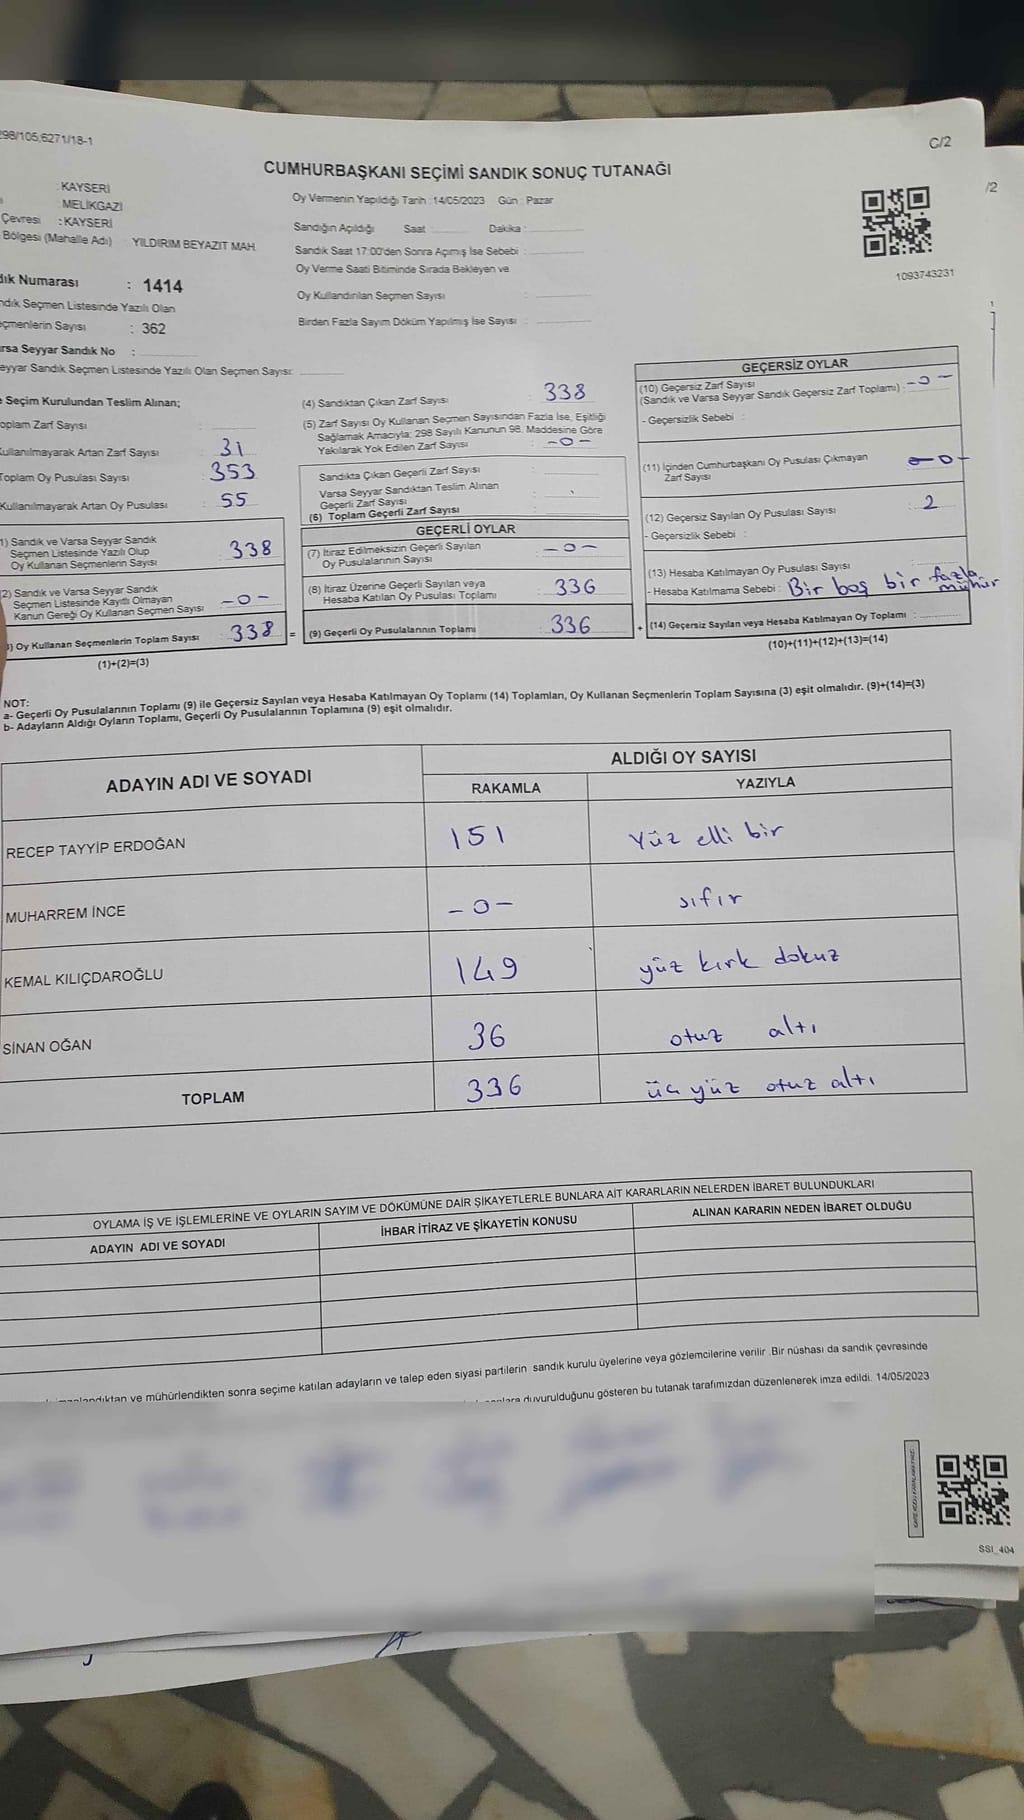 298/105;6271/18-1
C/2
/2
CUMHURBAŞKANI SEÇİMİ SANDIK SONUÇ TUTANAĞI
: KAYSERİ
: MELİKGAZİ
Çevresi : KAYSERİ
Bölgesi (Mahalle Adı) YILDIRIM BEYAZIT MAH.
Oy Vermenin Yapıldığı Tarih : 14/05/2023 Gün : Pazar
Sandığın Açıldığı Saat Dakika :
Sandık Saat 17:00'den Sonra Açılmış İse Sebebi :
Oy Verme Saati Bitiminde Sırada Bekleyen ve
Oy Kullandırılan Seçmen Sayısı :
Birden Fazla Sayım Döküm Yapılmış İse Sayısı :
1093743231
Numarası : 1414
Seçmen Listesinde Yazılı Olan
Sayısı : 362
Seyyar Sandık No :
Seyyar Sandık Seçmen Listesinde Yazılı Olan Seçmen Sayısı:
Seçim Kurulundan Teslim Alınan;
Toplam Zarf Sayısı :
Kullanılmayarak Artan Zarf Sayısı : 31
Toplam Oy Pusulası Sayısı : 353
Kullanılmayarak Artan Oy Pusulası : 55
1) Sandık ve Varsa Seyyar Sandık
Seçmen Listesinde Yazılı Olup
Oy Kullanan Seçmenlerin Sayısı 338
2) Sandık ve Varsa Seyyar Sandık
Seçmen Listesinde Kayıtlı Olmayan
Kanun Gereği Oy Kullanan Seçmen Sayısı -0-
) Oy Kullanan Seçmenlerin Toplam Sayısı : 338 =
(1)+(2)=(3)
(4) Sandıktan Çıkan Zarf Sayısı : 338
(5) Zarf Sayısı Oy Kullanan Seçmen Sayısından Fazla İse, Eşitliği
Sağlamak Amacıyla; 298 Sayılı Kanunun 98. Maddesine Göre
Yakılarak Yok Edilen Zarf Sayısı : -0-
Sandıkta Çıkan Geçerli Zarf Sayısı :
Varsa Seyyar Sandıktan Teslim Alınan
Geçerli Zarf Sayısı :
(6) Toplam Geçerli Zarf Sayısı :
GEÇERLİ OYLAR
(7) İtiraz Edilmeksizin Geçerli Sayılan
Oy Pusulalarının Sayısı : -0-
(8) İtiraz Üzerine Geçerli Sayılan veya
Hesaba Katılan Oy Pusulası Toplamı : 336
(9) Geçerli Oy Pusulalarının Toplamı : 336 +
GEÇERSİZ OYLAR
(10) Geçersiz Zarf Sayısı
(Sandık ve Varsa Seyyar Sandık Geçersiz Zarf Toplamı) : -0-
- Geçersizlik Sebebi :
(11) İçinden Cumhurbaşkanı Oy Pusulası Çıkmayan
Zarf Sayısı : 0-
(12) Geçersiz Sayılan Oy Pusulası Sayısı : 2
- Geçersizlik Sebebi :
(13) Hesaba Katılmayan Oy Pusulası Sayısı :
- Hesaba Katılmama Sebebi : Bir boş bir fazla mühür
(14) Geçersiz Sayılan veya Hesaba Katılmayan Oy Toplamı :
(10)+(11)+(12)+(13)=(14)
NOT:
a- Geçerli Oy Pusulalarının Toplamı (9) ile Geçersiz Sayılan veya Hesaba Katılmayan Oy Toplamı (14) Toplamları, Oy Kullanan Seçmenlerin Toplam Sayısına (3) eşit olmalıdır. (9)+(14)=(3)
b- Adayların Aldığı Oyların Toplamı, Geçerli Oy Pusulalarının Toplamına (9) eşit olmalıdır.
ADAYIN ADI VE SOYADI
ALDIĞI OY SAYISI
RAKAMLA YAZIYLA
RECEP TAYYİP ERDOĞAN 151 Yüz elli bir
MUHARREM İNCE -0- sıfır
KEMAL KILIÇDAROĞLU 149 yüz kırk dokuz
SİNAN OĞAN 36 otuz altı
TOPLAM 336 üç yüz otuz altı
OYLAMA İŞ VE İŞLEMLERİNE VE OYLARIN SAYIM VE DÖKÜMÜNE DAİR ŞİKAYETLERLE BUNLARA AİT KARARLARIN NELERDEN İBARET BULUNDUKLARI
ADAYIN ADI VE SOYADI İHBAR İTİRAZ VE ŞİKAYETİN KONUSU ALINAN KARARIN NEDEN İBARET OLDUĞU
ve mühürlendikten sonra seçime katılan adayların ve talep eden siyasi partilerin sandık kurulu üyelerine veya gözlemcilerine verilir. Bir nüshası da sandık çevresinde
duyurulduğunu gösteren bu tutanak tarafımızdan düzenlenerek imza edildi. 14/05/2023
SSI_404